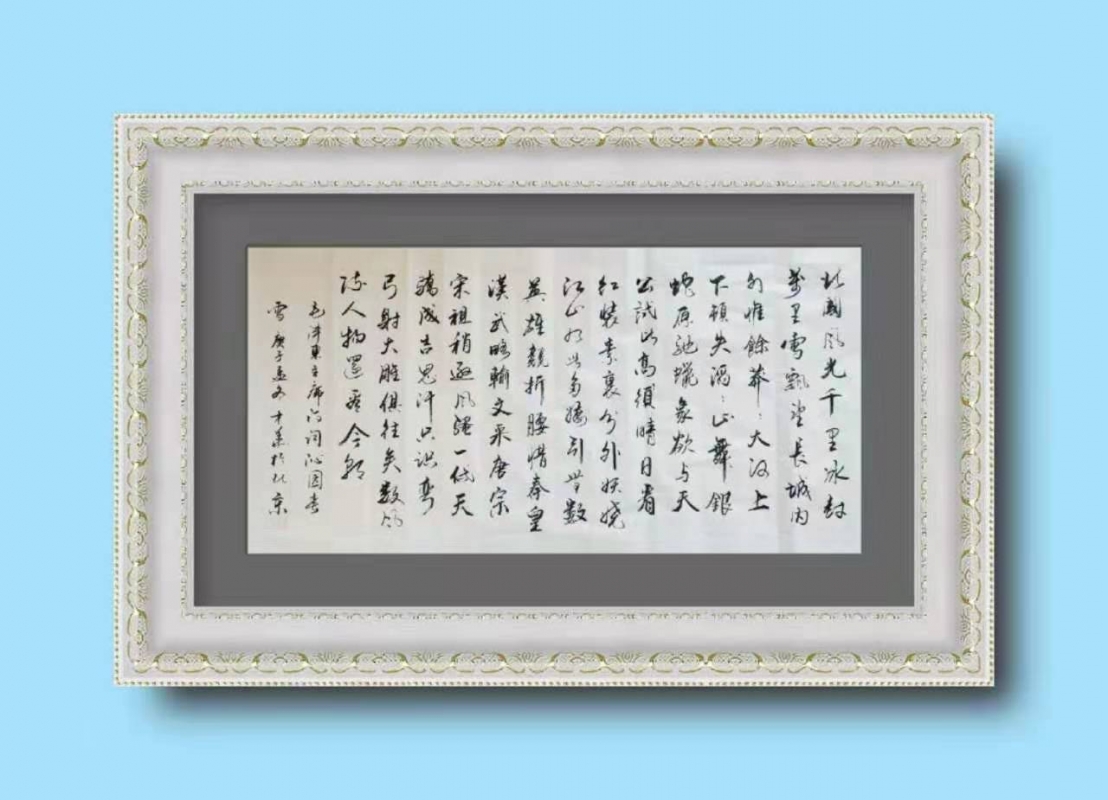 北國風光千里冰封
萬里雪飄望長城内
外惟餘莽:大河上
下頓失滔:山舞銀
蛇原馳蠟象欲与天
公試比高須晴日看
紅裝素裹分外妖嬈
江山如此多嬌引無數
英雄競折腰惜秦皇
漢武略輸文采唐宗
宋祖稍遜風騷一代天
驕成吉思汗只识弯
弓射大雕俱往矣数風
流人物還看今朝
毛泽東主席詞沁园春
雪 庚子孟冬 才 於北京